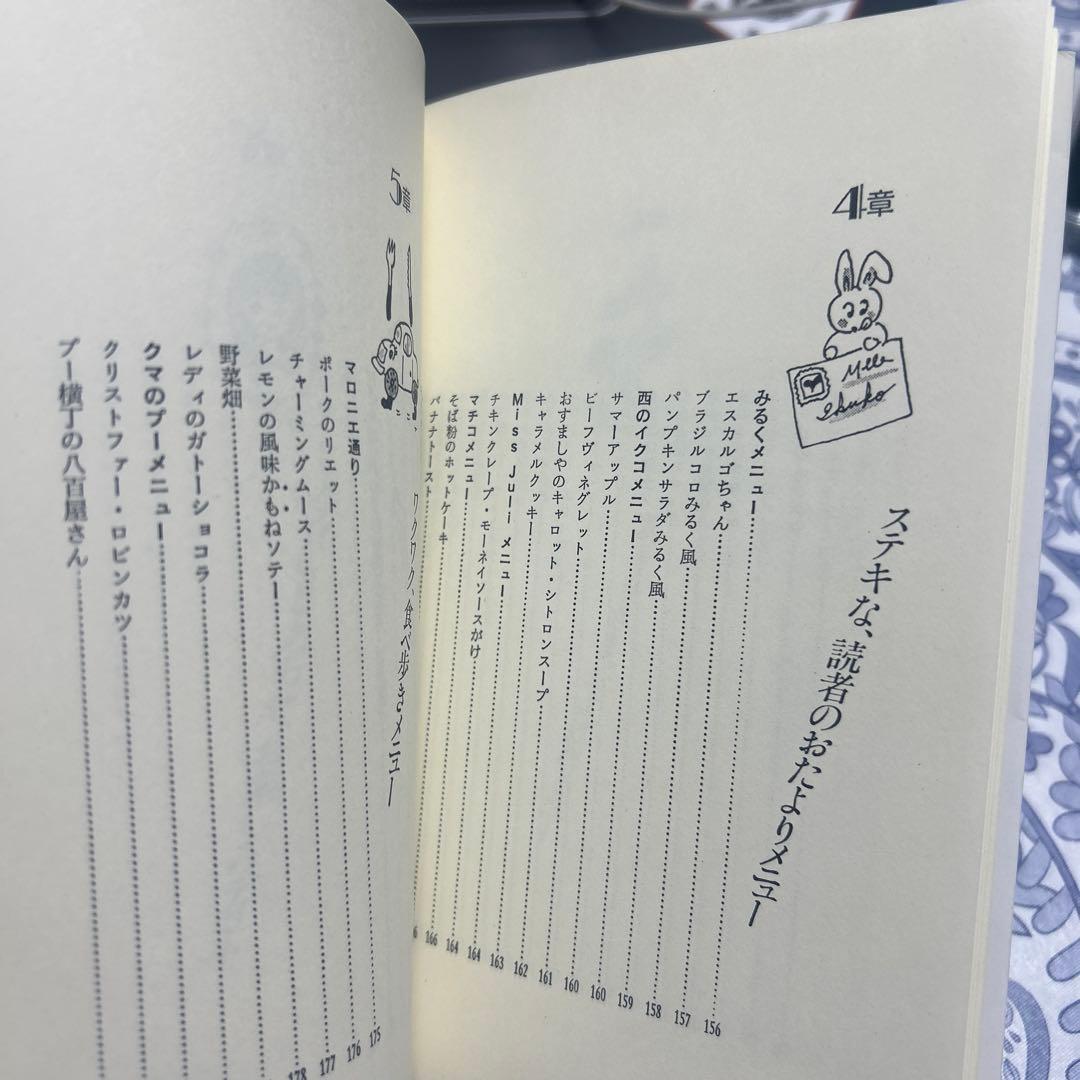 4章
Mlle
Ikuko
ステキな、読者のおたよりメニュー
みるくメニュー
エスカルゴちゃん
ブラジルコロみるく風
パンプキンサラダみるく風
西のイクコメニュー
サマーアップル
ビーフヴィネグレット
おすましやのキャロット・シトロンスープ
キャラメルクッキー
Miss Juliメニュー
チキンクレープ・モーネイソースがけ
マチコメニュー
そば粉のホットケーキ
バナナトースト
156
157
158
159
160
160
161
162
163
164
164
166
5章
ワクワク、食べ歩きメニュー
マロニエ通り
ポークのリエット
チャーミングムース
レモンの風味かもねソテー
野菜畑
レディのガトーショコラ
クマのプーメニュー
クリストファー・ロビンカツ
プー横丁の八百屋さん
175
176
177
178